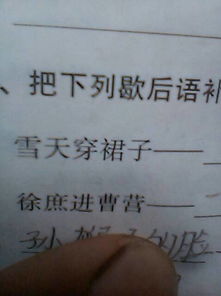 、把下列歇后语补
雪天穿裙子——
徐庶进曹营——
孙 的脸